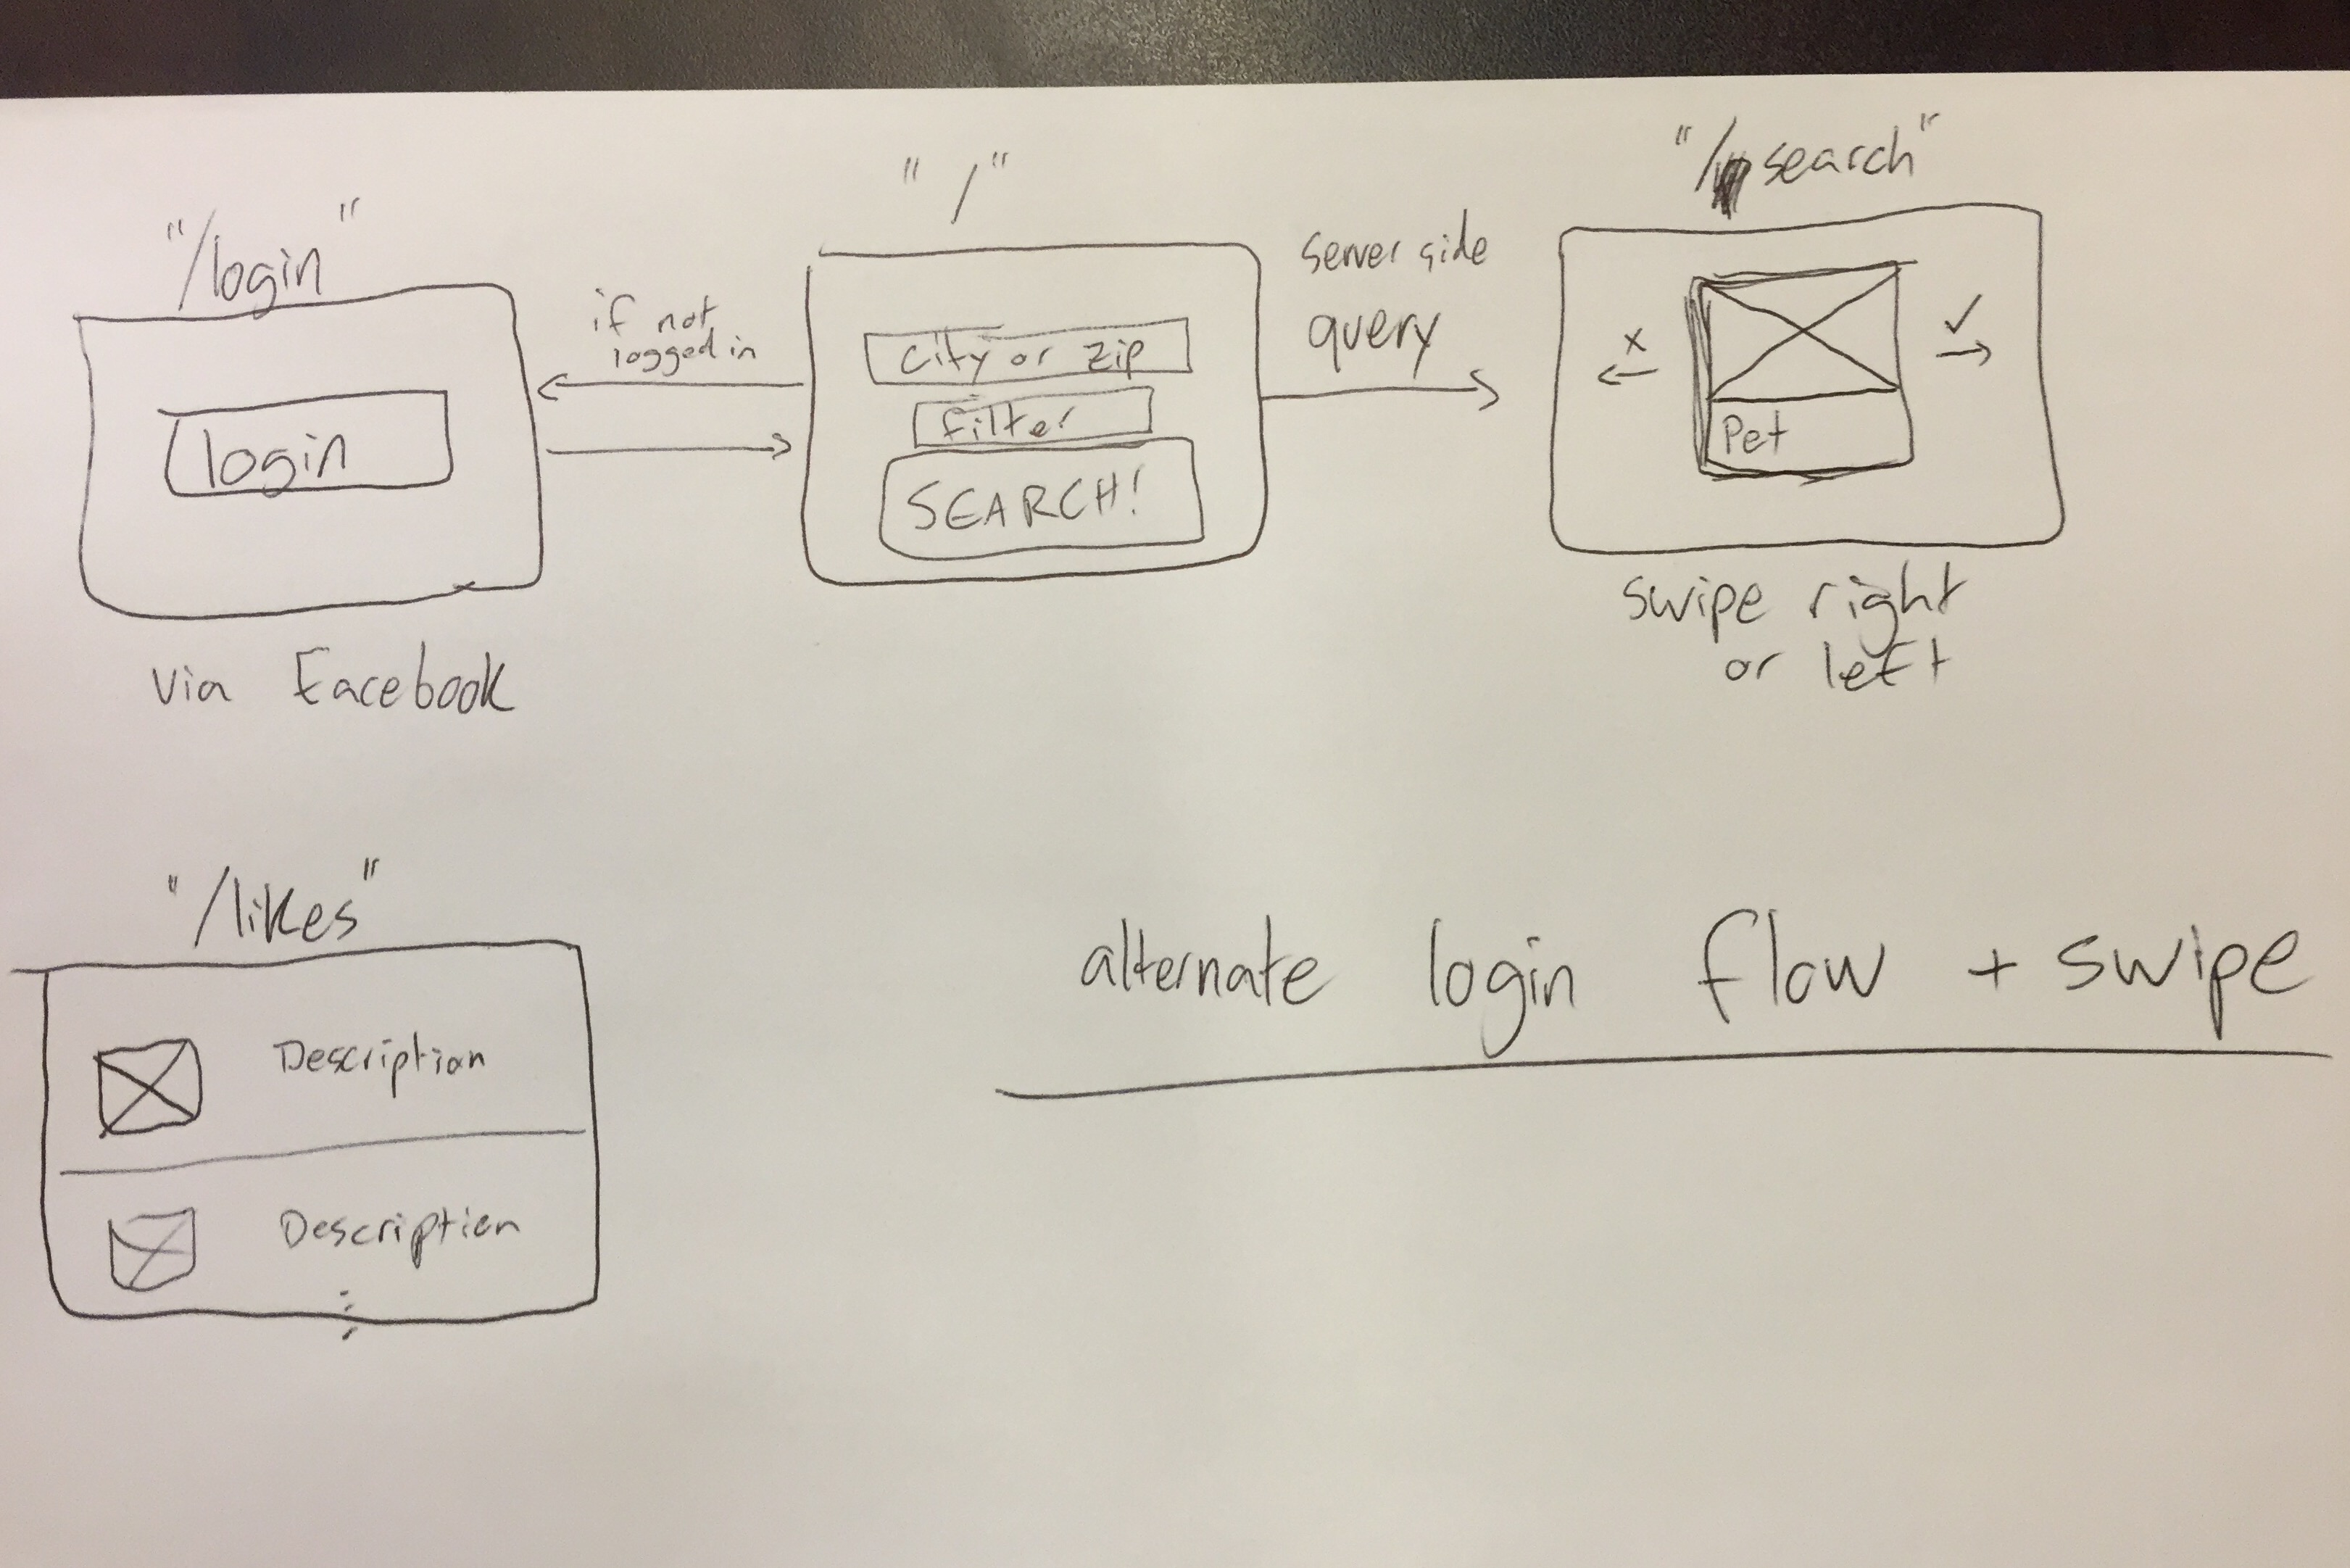 "/login"
login
via Facebook
if not
logged in
"/"
city or zip
filter
SEARCH!
server side
query
"/search"
x
✓
Pet
swipe right
or left
"/likes"
Description
Description
alternate login flow + swipe